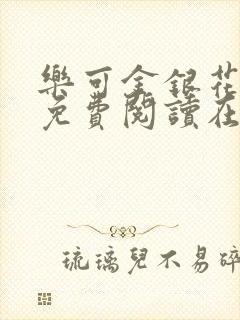 樂可金銀花
免費閱讀在
琉璃兒不易碎